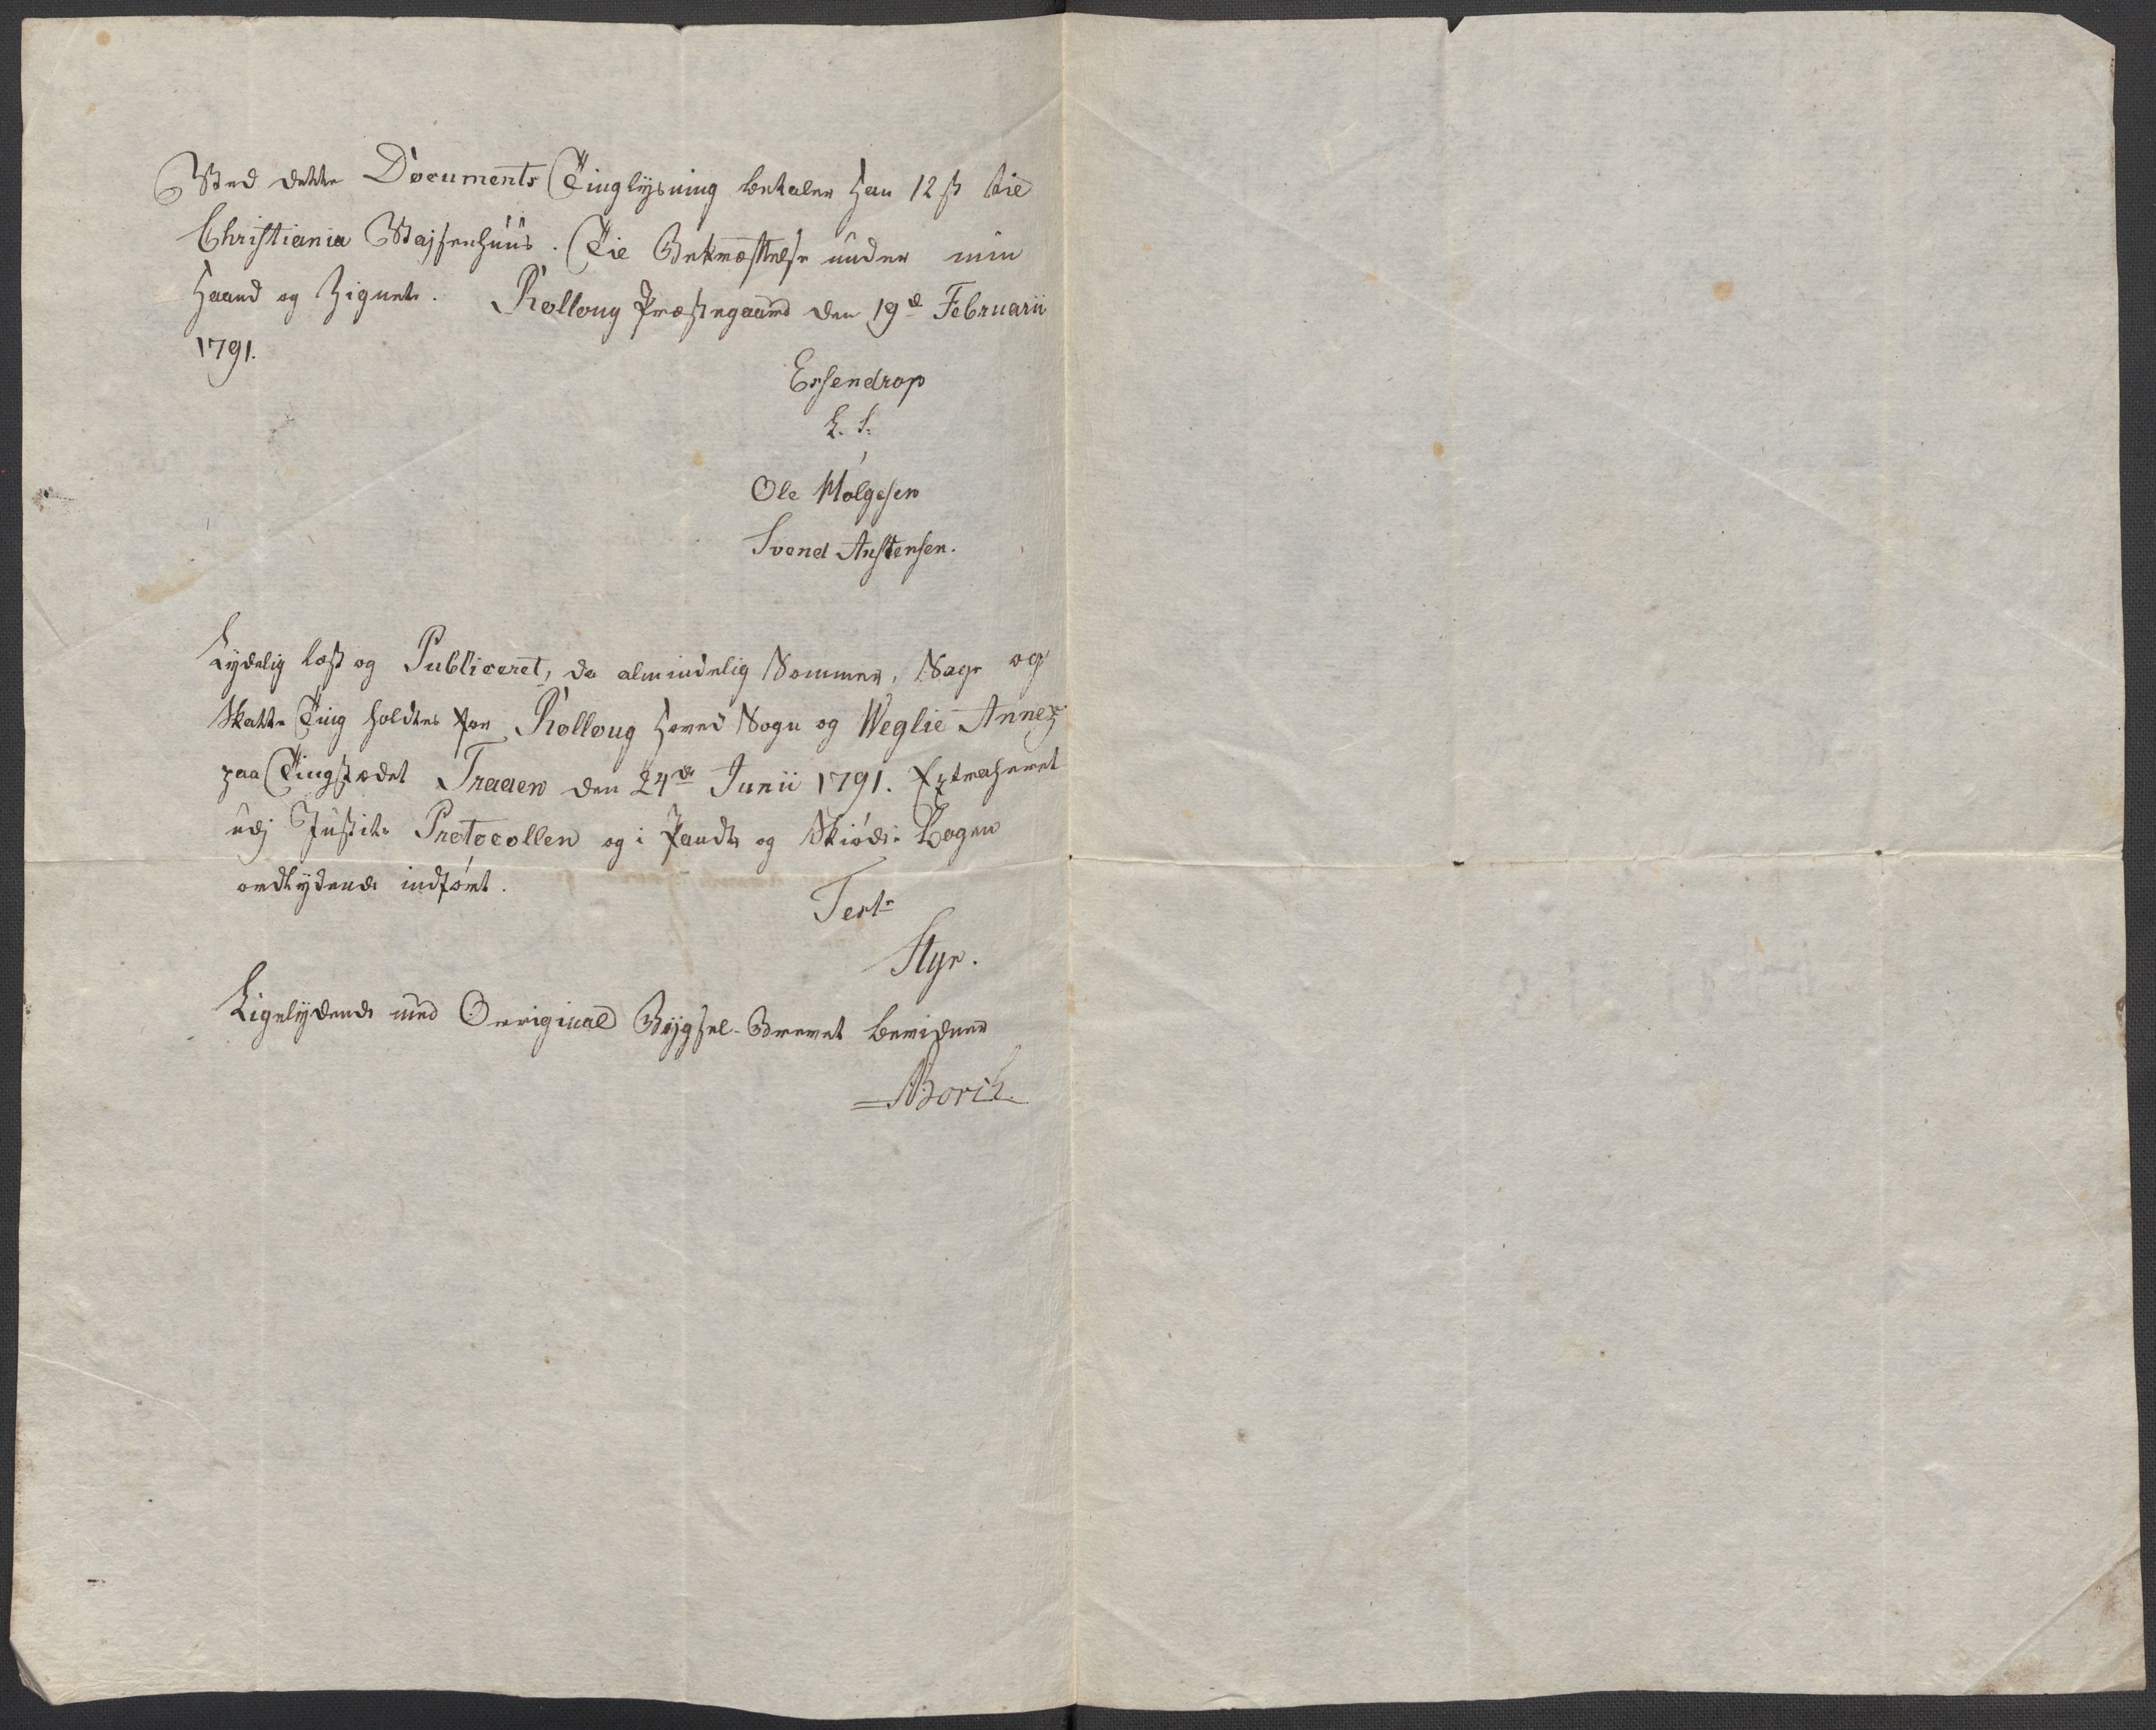 Ved dette Documents Tinglysning betaler han 12 ß til
Christiania Wajsenhuus. Til Bekræftelse under min
Haand og Zignete. Rolloug Præstegaard den 19de Februarii
1791.
Essendrop
L. S.
Ole Holgesen
Svend Anstensen.
Lydelig læst og Publiceret, da almindelig Sommer, Sage og
Skatte Ting holdtes for Rolloug Hoved Sogn og Weglie Annex
paa Tingstædet Traaen den 24de Junii 1791. Extraheret
udj Justits Protocollen og i Pandte og Skiøde Bogen
ordlydende indført.
Test.
Styr.
Ligelydende med Orriginal Bygsel-Brevet bevidner